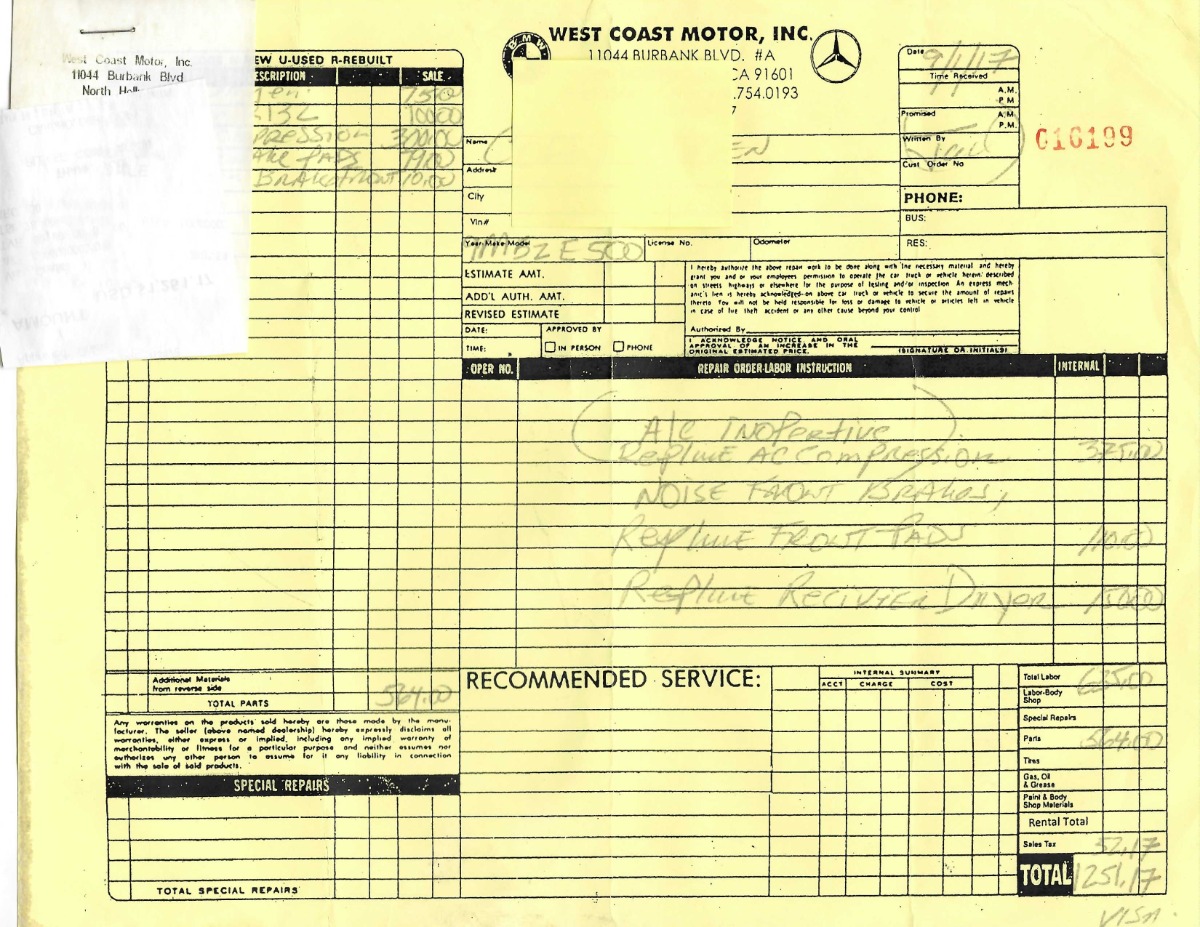 West Coast Motor, Inc.
11044 Burbank Blvd
North
EW U-USED R-REBUILT
ESCRIPTION SALE
PRESSION 300.00
PADS
BRAKE FRONT 10.00
BMW
WEST COAST MOTOR, INC.
11044 BURBANK BLVD. #A
CA 91601
.754.0193
7
Name EN
Address
City
Vin#
Year-Make-Model MBZ E500 License No. Odometer
Date 9/1/17
Time Received
A.M.
P.M
Promised A.M
P.M.
Written By
Cust Order No
PHONE:
BUS:
RES:
016199
ESTIMATE AMT.
ADD'L AUTH. AMT.
REVISED ESTIMATE
DATE: APPROVED BY
TIME: IN PERSON PHONE
I hereby authorize the above repair work to be done along with the necessary material and hereby
grant you and or your employees permission to operate the car truck or vehicle herein described
on streets highways or elsewhere for the purpose of testing and/or inspection. An express mech-
anic's lien is hereby acknowledged on above car truck or vehicle to secure the amount of repairs
thereto. You will not be held responsible for loss or damage to vehicle or articles left in vehicle
in case of fire theft accident or any other cause beyond your control
Authorized By
I ACKNOWLEDGE NOTICE AND ORAL
APPROVAL OF AN INCREASE IN THE
ORIGINAL ESTIMATED PRICE. (SIGNATURE OR INITIALS)
OPER NO. REPAIR ORDER-LABOR INSTRUCTION INTERNAL
A/C INOPERTIVE
REPLUME AC COMPRESSION 375.00
NOISE FRONT BRAKES,
REPLUME FRONT PADS 110.00
REPLUME RECIVIER DRYER 150.00
Additional Materials
from reverse side
TOTAL PARTS 564.00
Any warranties on the products sold hereby are those made by the manu-
facturer. The seller (above named dealership) hereby expressly disclaims all
warranties, either express or implied, including any implied warranty of
merchantability or fitness for a particular purpose and neither assumes nor
authorizes any other person to assume for it any liability in connection
with the sale of said products.
SPECIAL REPAIRS
TOTAL SPECIAL REPAIRS
RECOMMENDED SERVICE:
INTERNAL SUMMARY
ACCT CHARGE COST
Total Labor 635.00
Labor-Body
Shop
Special Repairs
Parts 564.00
Tires
Gas, Oil
& Grease
Paint & Body
Shop Materials
Rental Total
Sales Tax 52.17
TOTAL 1251.17
VISA